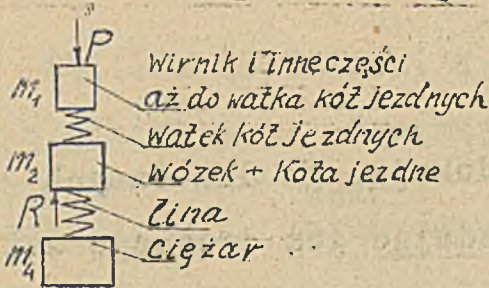 P
Wirnik i inne części
m₁
aż do wałka kół jezdnych
wałek kół jezdnych
m₂
wózek + koła jezdne
R
lina
m₄
ciężar